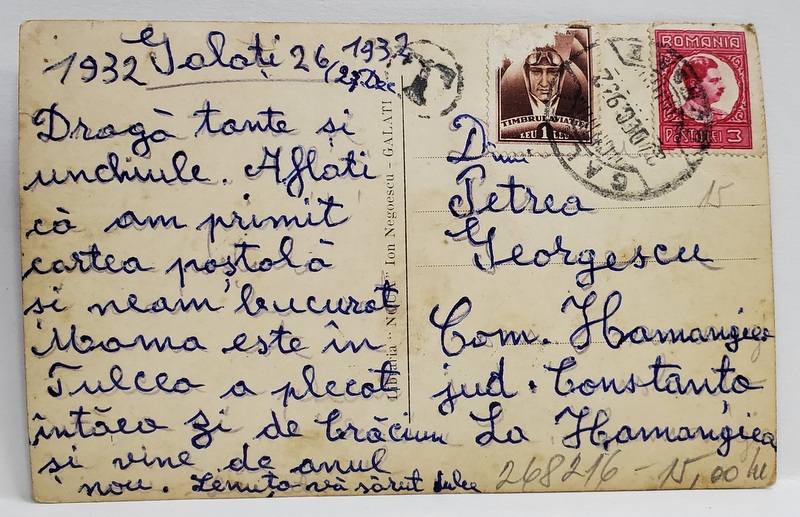 1932 Galați 26 1932
(27 Dec
Dragă tante și
unchiule. Aflati
că am primit
cartea poștală
și neam bucurat
Mama este în
Tulcea a plecat
întăea zi de Crăciun
și vine de anul
nou. Lenuța vă sărut dulce
Librăria "NOUA" Ion Negoescu - GALATI
T
TIMBRUL AVIAȚIEI
LEU 1 LEU
ROMANIA
3
15
Petrea
Georgescu
Com. Hamangiea
jud. Constanta
La Hamangiea
268216 - 15,00 lei